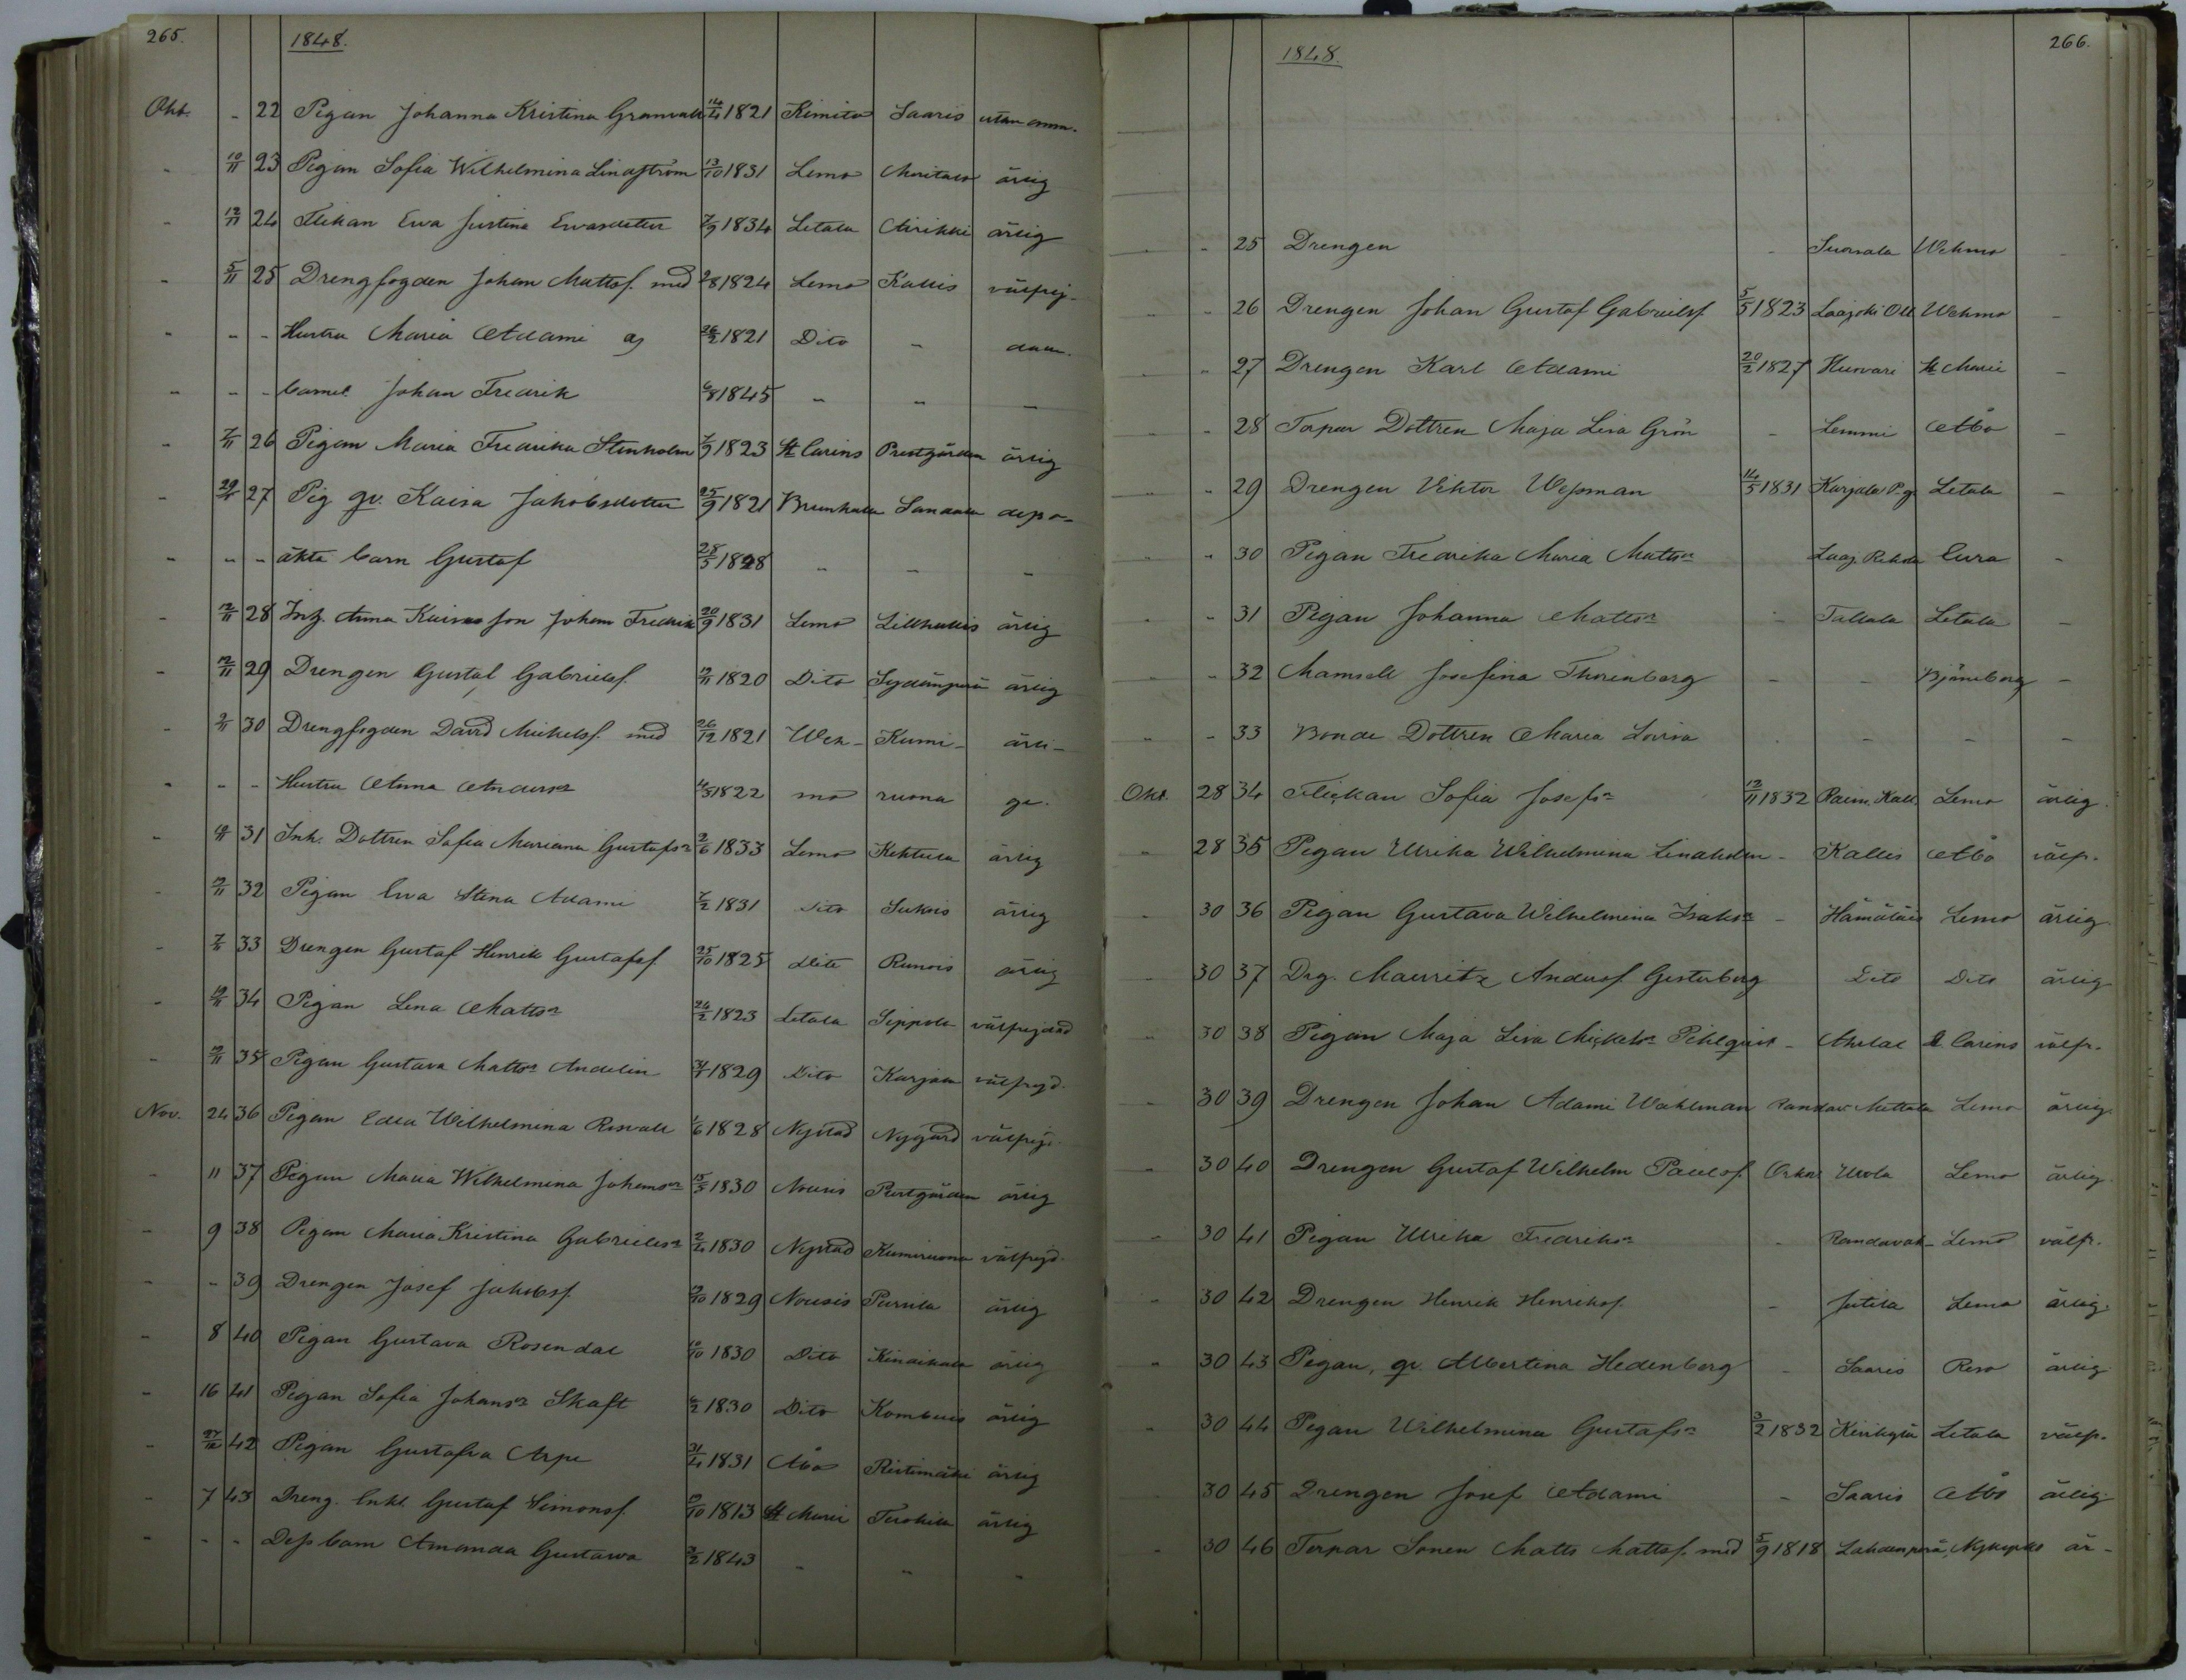 265.
1848.
Okt. - 22 Pigan Johanna Kristina Granvall 14/4 1821 Kimito Saaris utan anm.
- 10/11 23 Pigan Sofia Wilhelmina Lindström 13/10 1831 Lemo ärlig
- 12/11 24 Flickan Ewa Justina Ewasdotter 7/9 1834 Letala ärlig
- 5/11 25 Drengfogden Johan Mattsf. med 1824 Lemo Kallis välfrej-
- - - Hustru Maria Adami o. 1821 Dito -
- - - barnet Johan Fredrik 1845 - - -
- 7/11 26 Pigan Maria Fredrika Stenholm 7/9 1823 St Carins Prestgården ärlig
- 27 Pig qv. Kaisa Jakobsdotter 25/9 1821 depo-
- - - äkta barn Gustaf 28/5 - - -
- 2/11 28 Inh. Anna Kaisas son Johan Fredrik 20/9 1831 Lemo ärlig
- 12/11 29 Drengen Gustaf Gabrielsf. 1820 Dito Sydänperä ärlig
- 2/11 30 Drengfogden David Mickelsf. med 26/12 1821 Weh- Kumi- ärli-
- - - Hustru Anna Andersr 1822 mo ruona ge.
- 31 Inh. Dottren Sofia Mariana Gustafsr 2/6 1833 Lemo Kehtula ärlig
- 32 Pigan Ewa Stina Adami 7/2 1831 Dito ärlig
- 33 Drengen Gustaf Henrik Gustafsf. 25/10 1825 Dito Runois ärlig
- 34 Pigan Lena Mattsr 1823 Letala Seppola välfrejdad
- 35 Pigan Gustava Mattsr Andelin 1829 Dito Karjala välfrejd.
Nov. 24 36 Pigan Edla Wilhelmina 1/6 1828 Nystad Nygård välfrejd.
- 11 37 Pigan Maria Wilhelmina Johansr 15/5 1830 Nousis Prestgården ärlig
- 9 38 Pigan Maria Kristina Gabrielsr 2/4 1830 Nystad Kumiruona välfrejd.
- - 39 Drengen Josef Jakobsf. 1829 Nousis ärlig
- 8 40 Pigan Gustava Rosendal 1830 Dito ärlig
- 16 41 Pigan Sofia Johansr Skaft 1830 Dito ärlig
- 27/12 42 Pigan Gustafva Arpe 1831 Åbo Ristimäki ärlig
- 7 43 Dreng. Enkl. Gustaf Simonsf. 1813 St Marie ärlig
- - - Dess barn Amanda Gustawa 1843 - - -
1848.
266.
- - 25 Drengen - Wehmo -
- - 26 Drengen Johan Gustaf Gabrielsf 5/5 1823 Wehmo -
- - 27 Drengen Karl Adami 20/2 1827 St Marie -
- - 28 Torpar Dottren Maja Lisa Grön - Lemmi Åbo -
- - 29 Drengen Viktor Wessman 14/5 1831 Karjala P.g. Letala -
- - 30 Pigan Fredrika Maria Mattsr Eura -
- - 31 Pigan Johanna Mattsr - Tallala Letala -
- - 32 Mamsell Josefina Thorenberg - - Björneborg -
- - 33 Bonde Dottren Maria Lovisa - - - -
Okt. 28 34 Flickan Sofia Josefsr 12/11 1832 Lemo ärlig.
- 28 35 Pigan Ulrika Wilhelmina Lindholm - Kallis Åbo välfr.
- 30 36 Pigan Gustava Wilhelmina Isaksr - Hämäläis Lemo ärlig.
- 30 37 Drg. Mauritz Andersf. Gesterberg Dito Dito ärlig
- 30 38 Pigan Maja Lisa Mickelsr Pihlquist - St. Carins välfr.
- 30 39 Drengen Johan Adami Wahlman Lemo ärlig.
- 30 40 Drengen Gustaf Wilhelm Paulsf. Lemo ärlig.
- 30 41 Pigan Ulrika Fredriksr - Lemo välfr.
- 30 42 Drengen Henrik Henriksf. - Jutila Lemo ärlig.
- 30 43 Pigan, qv. Albertina Hedenberg - Saaris Reso ärlig
- 30 44 Pigan Wilhelmina Gustafsr 3/2 1832 Letala välfr.
30 45 Drengen Josef Adami - Saaris Åbo ärlig.
- 30 46 Torpar Sonen Matts Mattsf. med 5/9 1818 Lahdenperä, Nykyrko är-